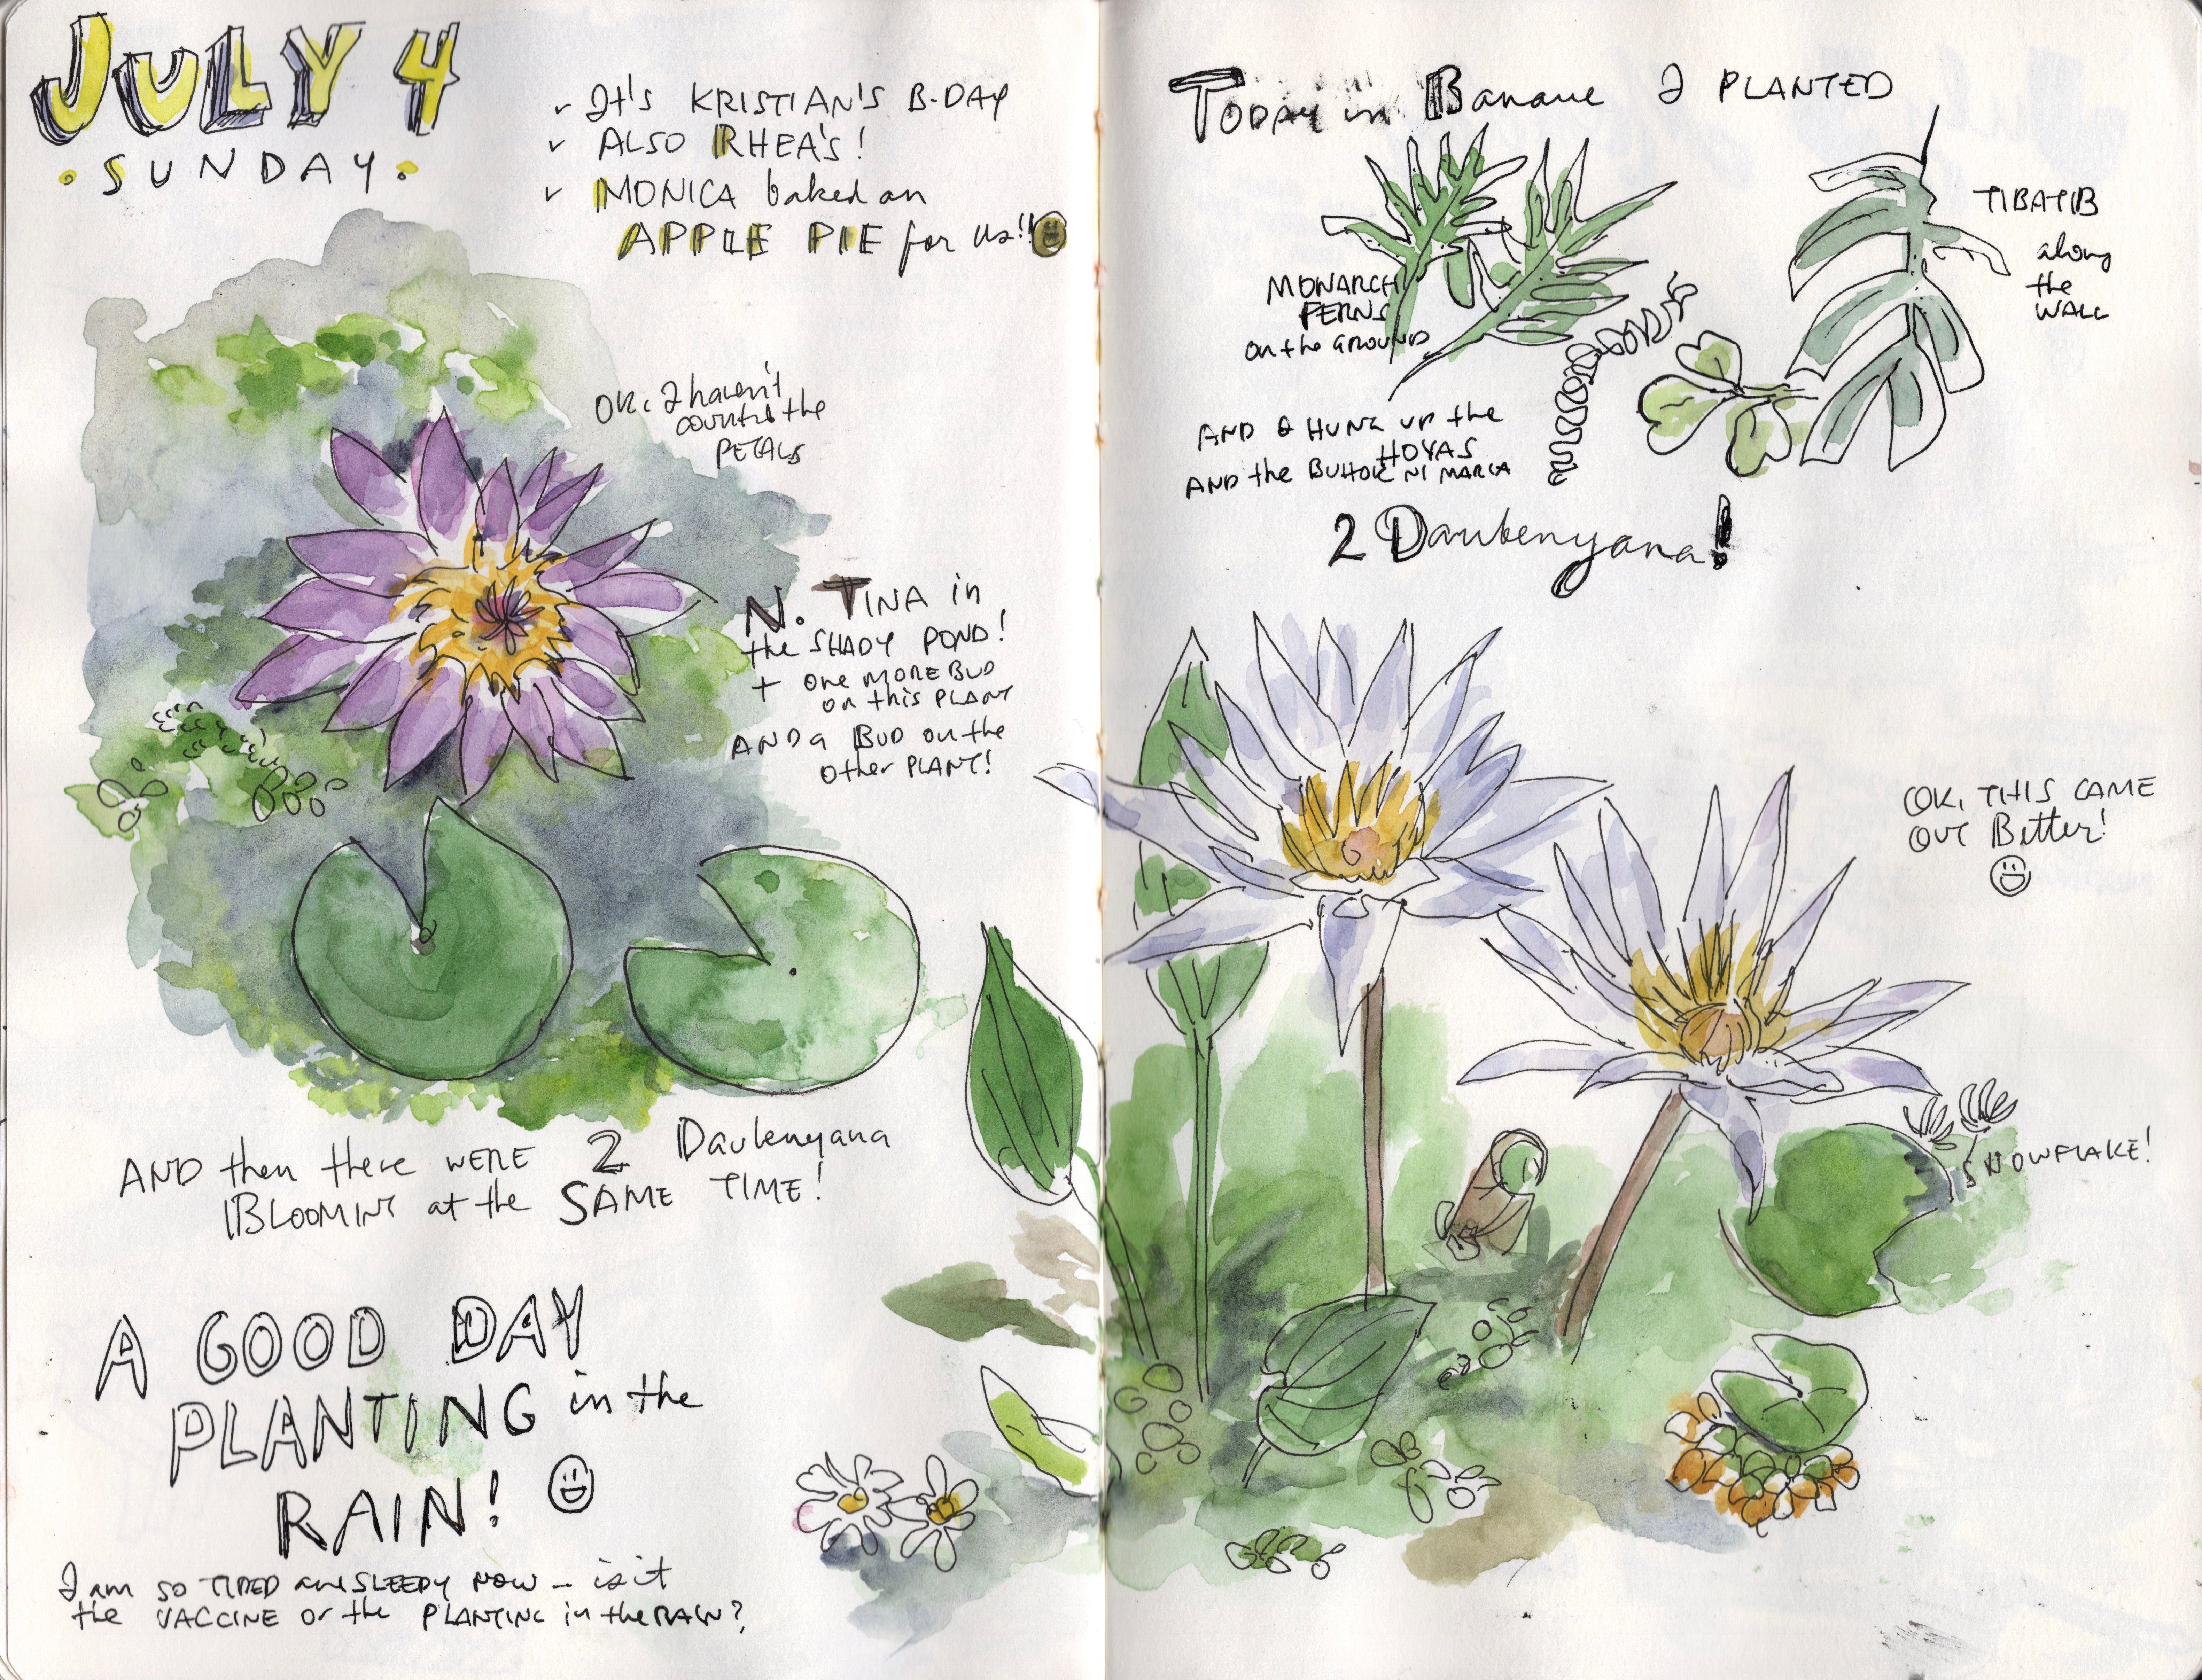 JULY 4
SUNDAY
It's KRISTIAN'S B-DAY
ALSO RHEA'S!
MONICA baked an
APPLE PIE for us!!
OK, I haven't
counted the
PETALS
N. TINA in
the SHADY POND!
+ one MORE BUD
on this PLANT
AND a BUD on the
other PLANT!
AND then there WERE 2 Daubenyana
BLOOMING at the SAME TIME!
A GOOD DAY
PLANTING in the
RAIN!
I am SO TIRED and SLEEPY NOW - is it
the VACCINE or the PLANTING in the RAIN?
TODAY in Banaue I PLANTED
MONARCH
FERNS
on the GROUND
TIBATIB
along
the
WALL
AND I HUNG UP the
HOYAS
AND the BUHOK NI MARIA
2 Daubenyana!
OK, THIS CAME
OUT Better!
SNOWFLAKE!